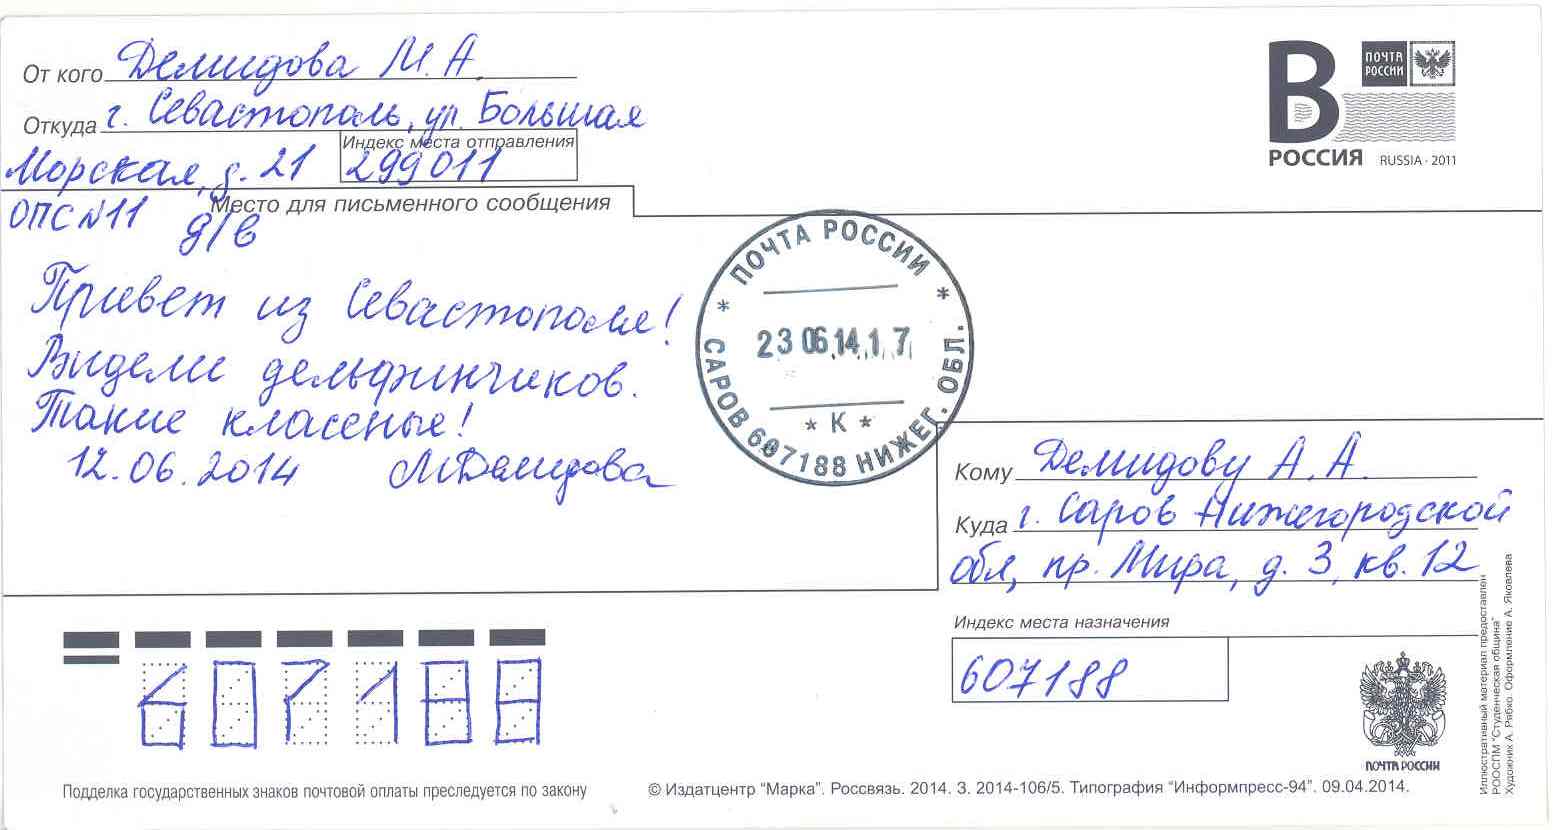 От кого Демидова М. А.
Откуда г. Севастополь, ул. Большая
Индекс места отправления
Морская, д. 21 299011
Место для письменного сообщения
ОПС №11 д/в
Привет из Севастополя!
Видели дельфинчиков.
Такие классные!
12.06.2014 МДемидова
В
ПОЧТА
РОССИИ
РОССИЯ RUSSIA · 2011
* ПОЧТА РОССИИ *
23 06.14.17
* К *
САРОВ 607188 НИЖЕГ. ОБЛ.
Кому Демидову А. А.
Куда г. Саров Нижегородской
обл, пр. Мира, д. 3, кв. 12
Индекс места назначения
607188
607188
ПОЧТА РОССИИ
Иллюстративный материал предоставлен
РООСПМ "Студенческая община"
Художник А. Рябко. Оформление А. Яковлева
Подделка государственных знаков почтовой оплаты преследуется по закону
© Издатцентр "Марка". Россвязь. 2014. З. 2014-106/5. Типография "Информпресс-94". 09.04.2014.